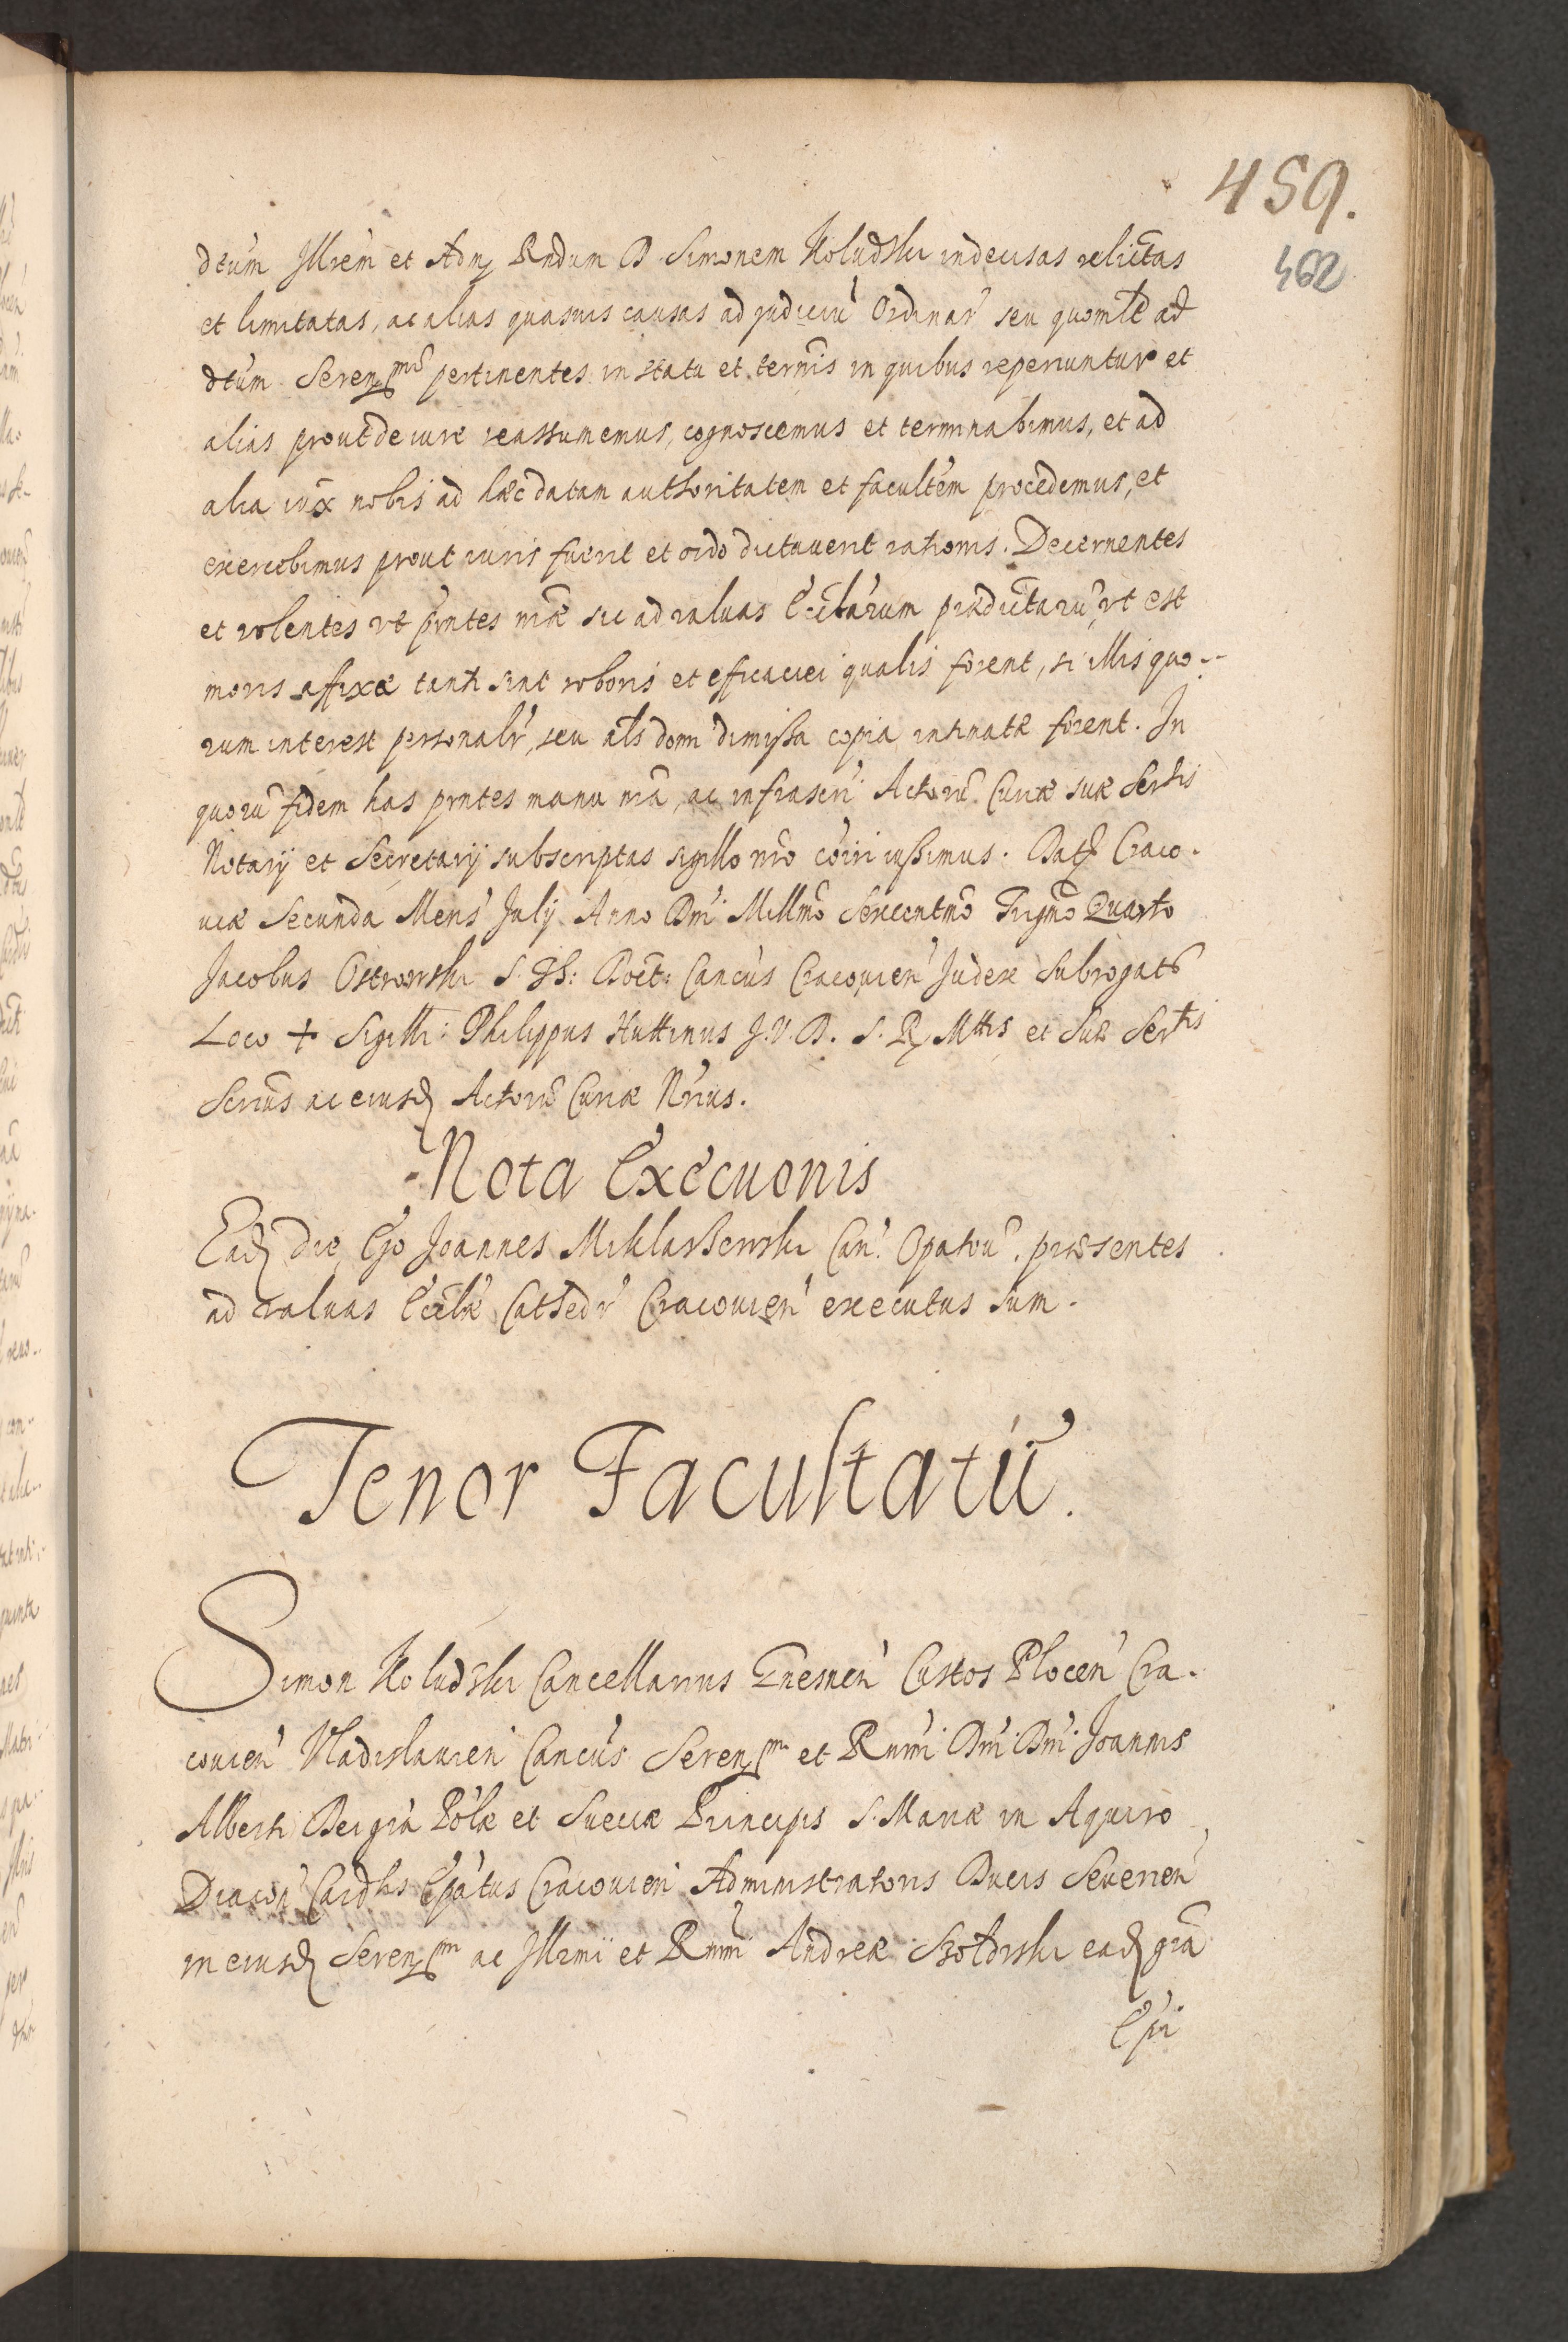 459.
462
dtum Jllrem et Adm Rndum D Simonem Koludzki indecisas relictas
et limitatas, ac alias quasuis causas ad judiciu Ordinar seu quomlt ad
dtum Serenmū pertinentes in statu et termis in quibus reperiuntur et
alias prout de iure reassumemus, cognoscemus et terminabimus, et ad
alia iux nobis ad hæc datam authoritatem et facultem procedemus, et
exercebimus prout iuris fuerit et ordo dictauerit rationis. Decernentes
et volentes vt pntes nræ sic ad valuas Ecclarum prædictaru, vt est
moris affixæ tanti sint roboris et eficaciei qualis forent, si illis quo-
rum interest personalr, seu als domi dimissa copia intimatæ forent. In
quoru fidem has pntes manu nra, ac infrascri Actoru Curiæ suæ Sertis
Notarij et Secretarij subscriptas sigillo nro coiri iussimus. Dat Craco-
uiæ Secunda Mens July Anno Dni Millmo Sexcentmo Trigmo Quarto
Jacobus Ostrowski S. Th: Doct: Cancus Cracouien Judex Subrogats
Loco + Sigilli: Philippus Huttinus J.V.D. S. R Mttis et Suæ Sertis
Scrius ac eiusd Actoru Curiæ Nrius.
Nota Executionis
Ead die Ego Joannes Miklaszewski Can. Opatou. præsentes
ad valuas Ecclæ Cathedr Cracouien executus sum.
Tenor Facultatū.
Simon Koludzki Cancellarius Gnesnen Custos Plocen Cra-
couien Vladislauien Cancus Serenmi et Rnmi Dni Dni Joannis
Alberti Dei gra Polæ et Sueciæ Principis S. Mariæ in Aquiro
Diacon Cardlis Epatus Cracouien Administratoris Ducis Seuerien
in eiusd Serenmi ac Jllrmi et Rnmi Andreæ Szołdrski ead gra
Epi